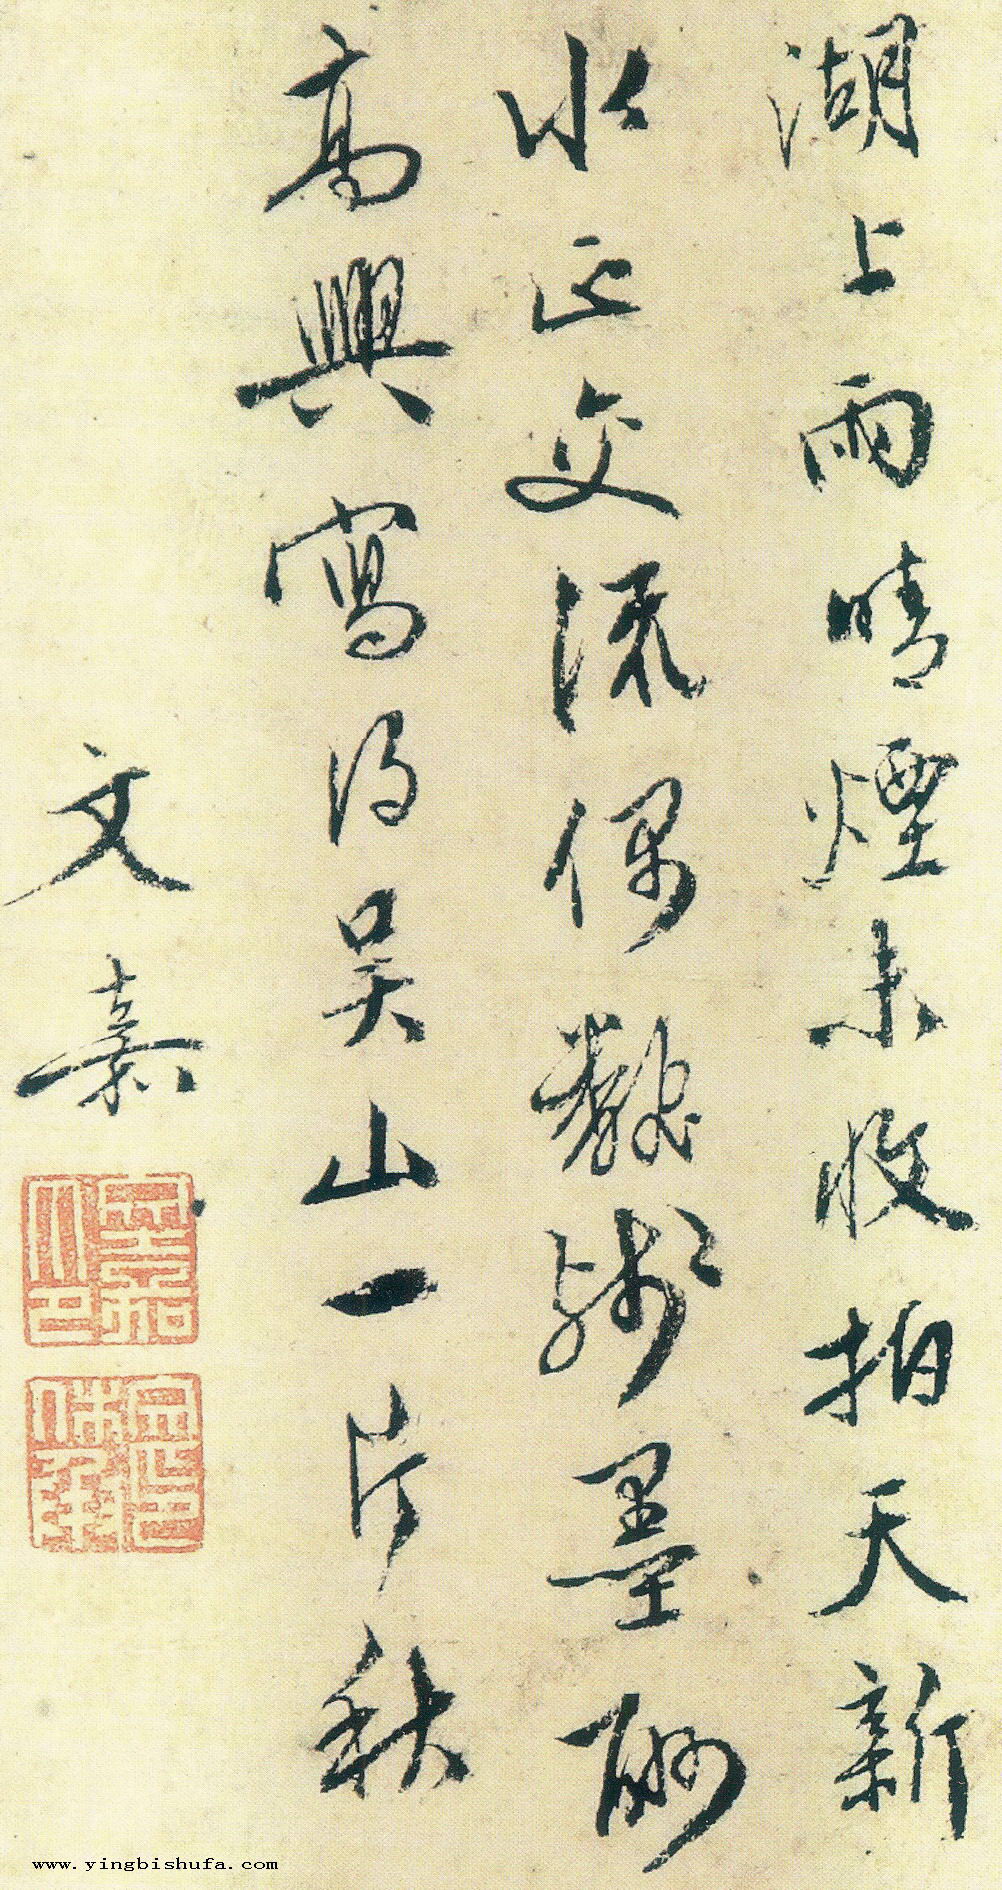 湖上雨晴煙未收拍天新
水正交流偶殘墨酬
高興寫得吳山一片秋
文嘉
www.yingbishufa.com